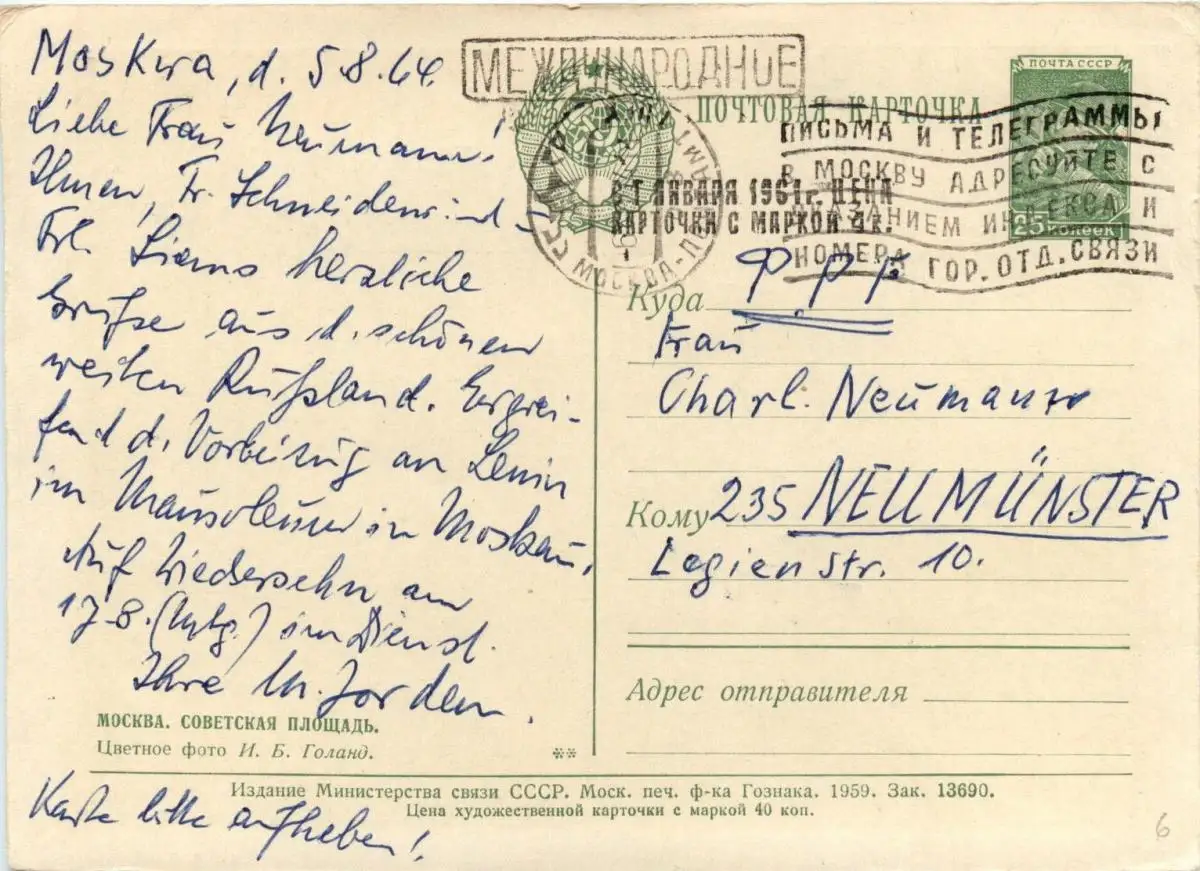 Moskwa, d. 5.8.64.
Liebe Frau Neumann!
Ihnen, Fr. Schneider und
Frl. herzliche
Grüße aus d. schönen
weiten Rußland. Ergrei-
fend d. Vorbeizug an Lenin
im Mausoleum in Moskau.
Auf Wiedersehn am
17.8. (Mtg.) im Dienst.
Ihre
МОСКВА. СОВЕТСКАЯ ПЛОЩАДЬ.
Цветное фото И. Б. Голанд.
**
Karte bitte aufheben!
МЕЖДУНАРОДНОЕ
ПОЧТОВАЯ КАРТОЧКА
ПОЧТА СССР
25 копеек
ПИСЬМА И ТЕЛЕГРАММЫ
В МОСКВУ АДРЕСУЙТЕ С
УКАЗАНИЕМ ИНДЕКСА И
НОМЕРА ГОР. ОТД. СВЯЗИ
С 1 ЯНВАРЯ 1961г. ЦЕНА
КАРТОЧКИ С МАРКОЙ 4к.
СССР МОСКВА
Куда Ф.Р.Г.
Frau
Charl. Neumann
Кому 235 NEUMÜNSTER
Legienstr. 10.
Адрес отправителя
Издание Министерства связи СССР. Моск. печ. ф-ка Гознака. 1959. Зак. 13690.
Цена художественной карточки с маркой 40 коп.
6